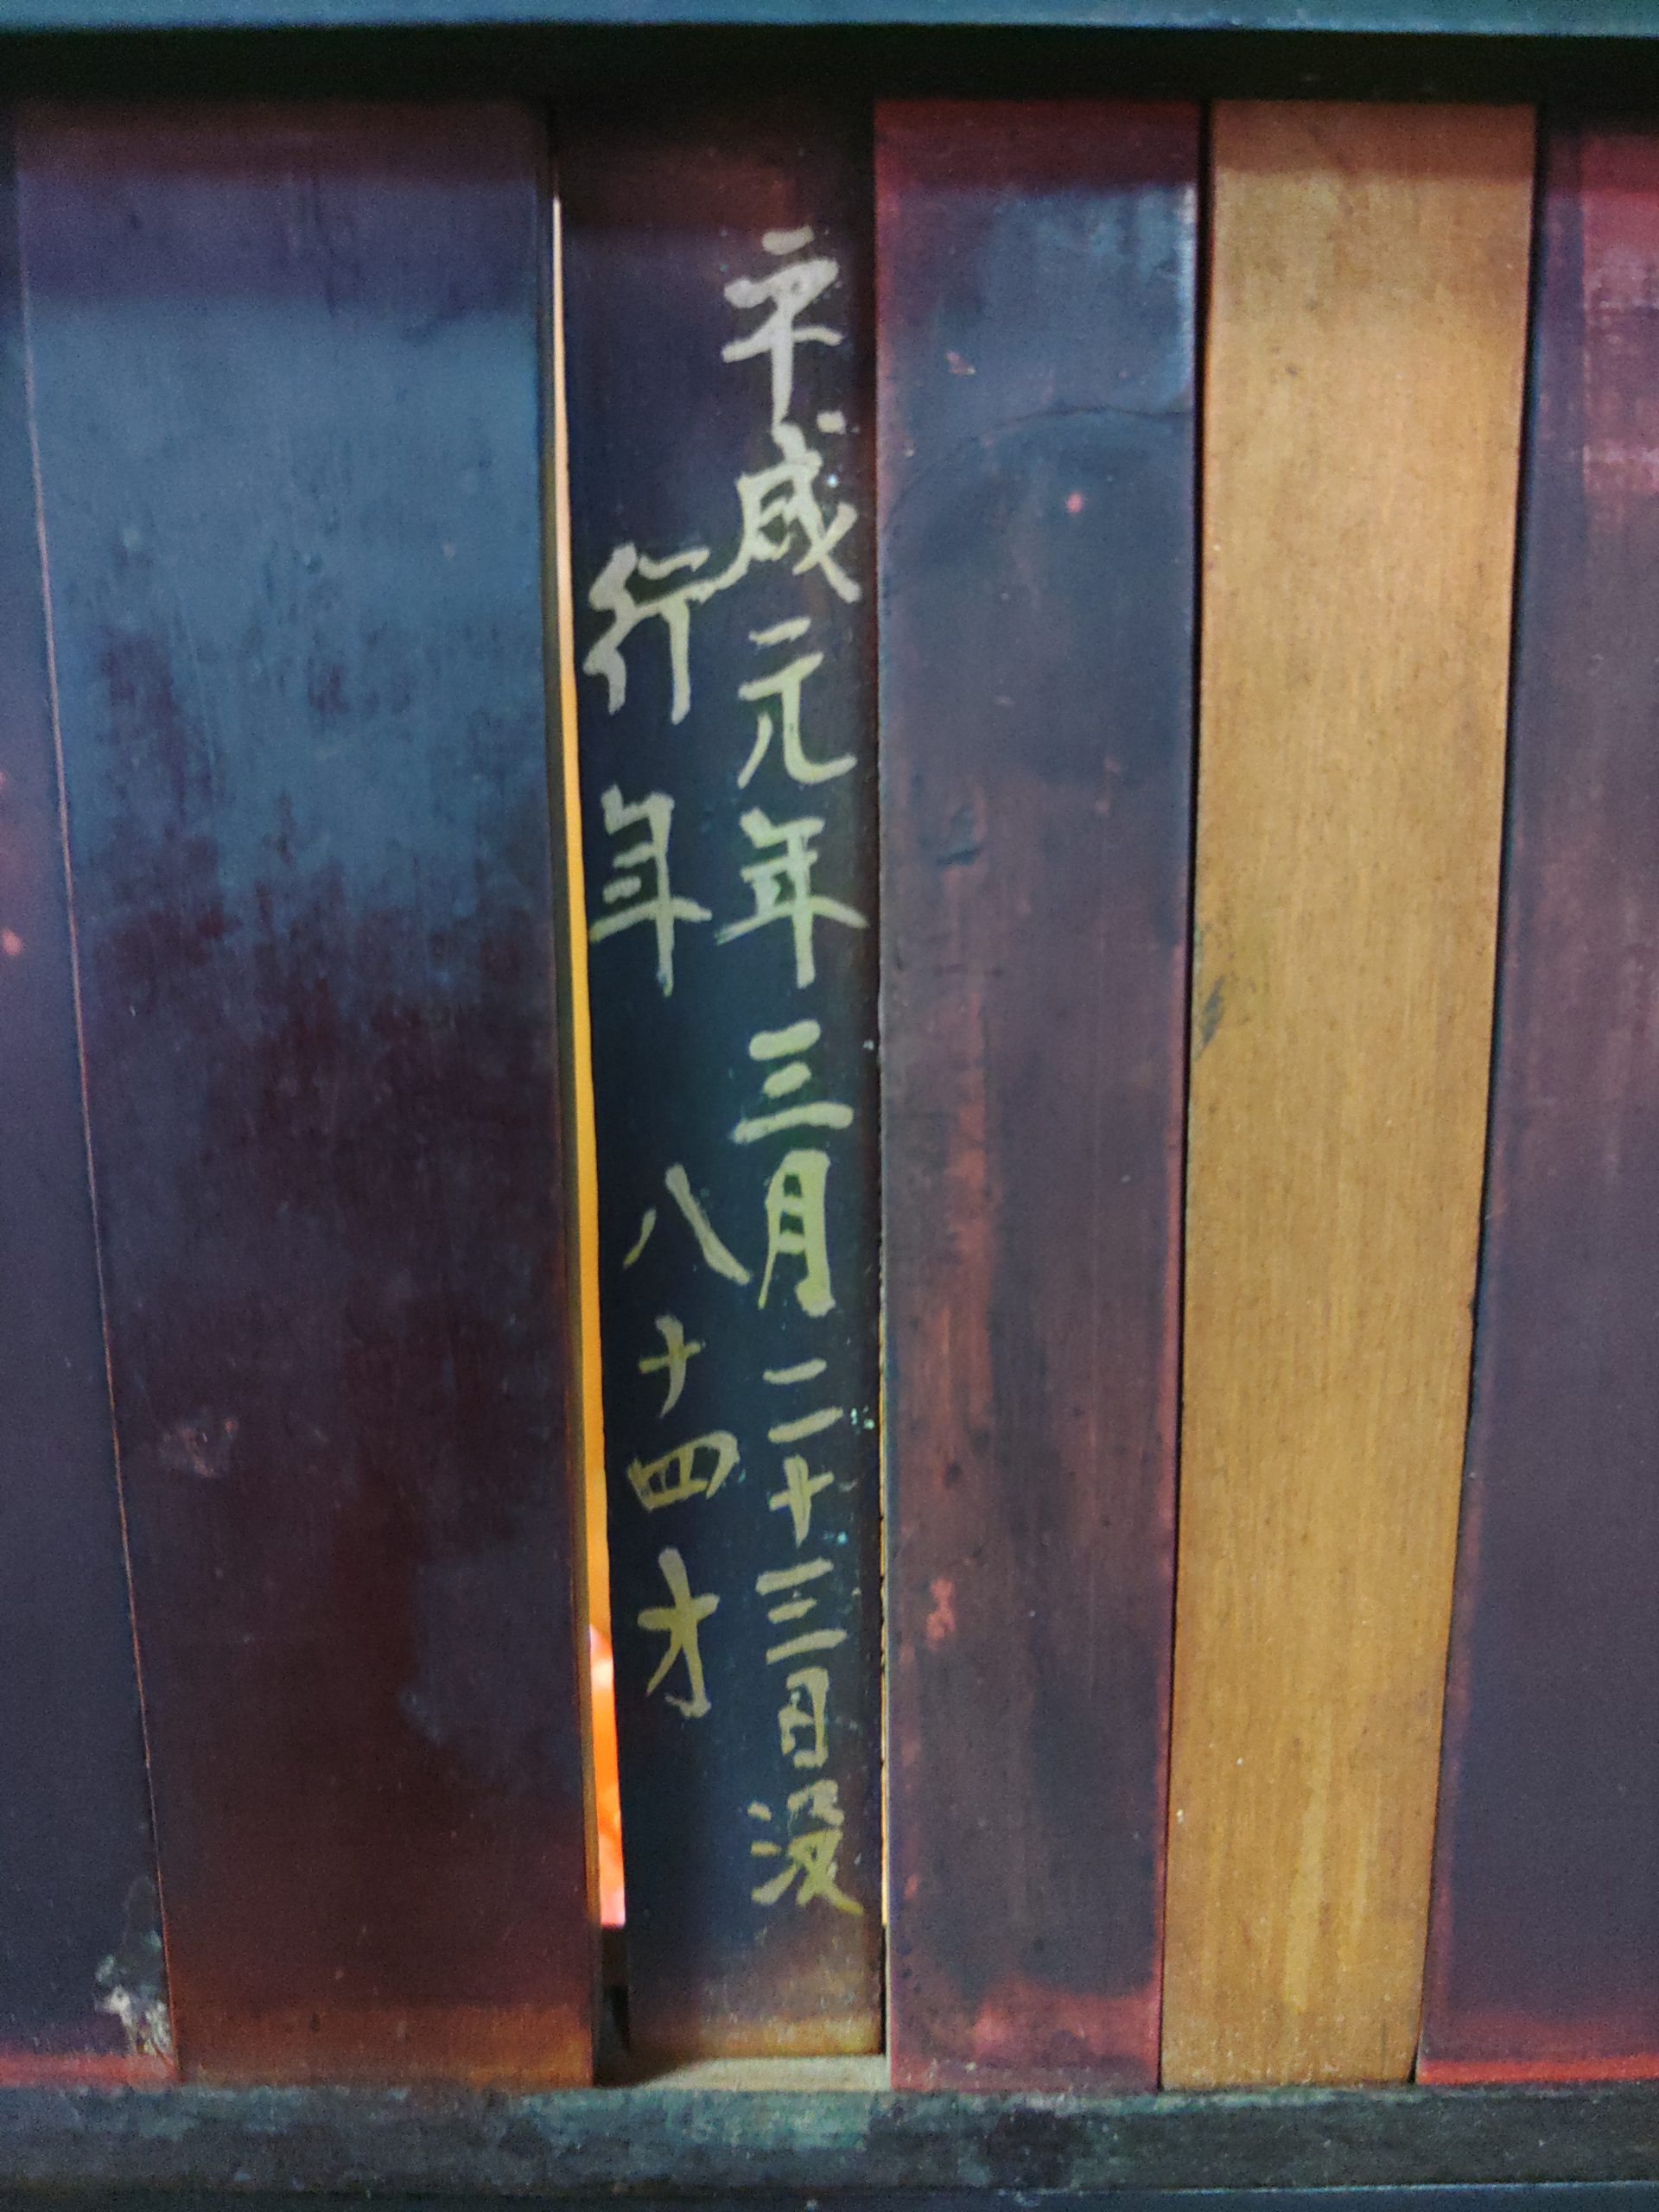 平成元年三月二十三日没
行年 八十四才